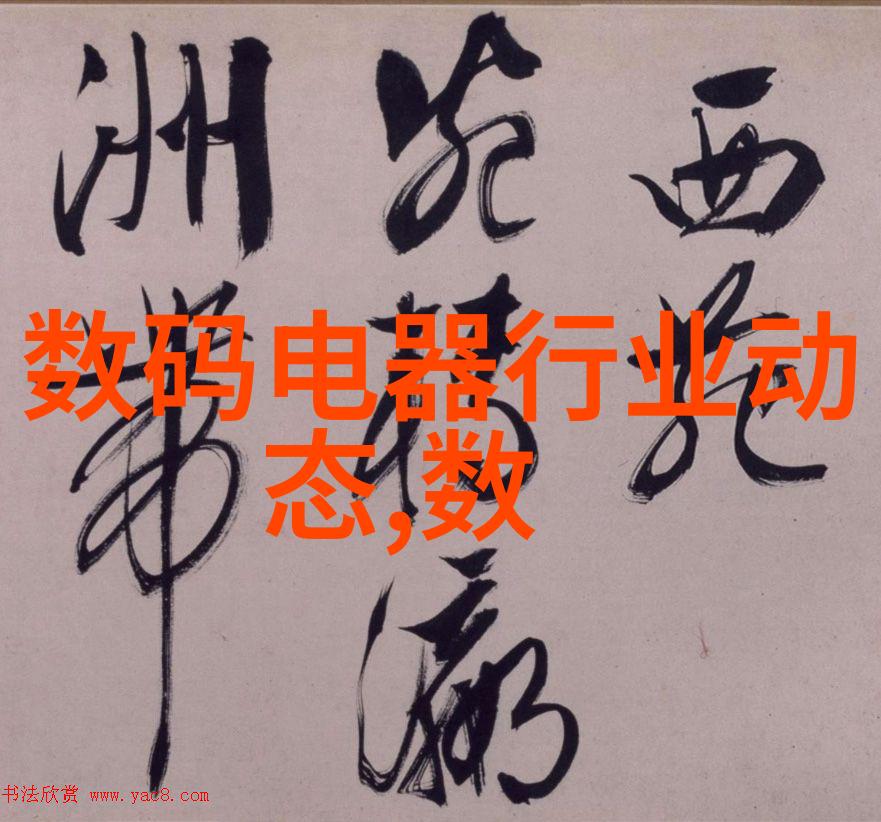 西苑
瀛
洲
数码电器行业动
态,数
书法欣赏 www.yac8.com